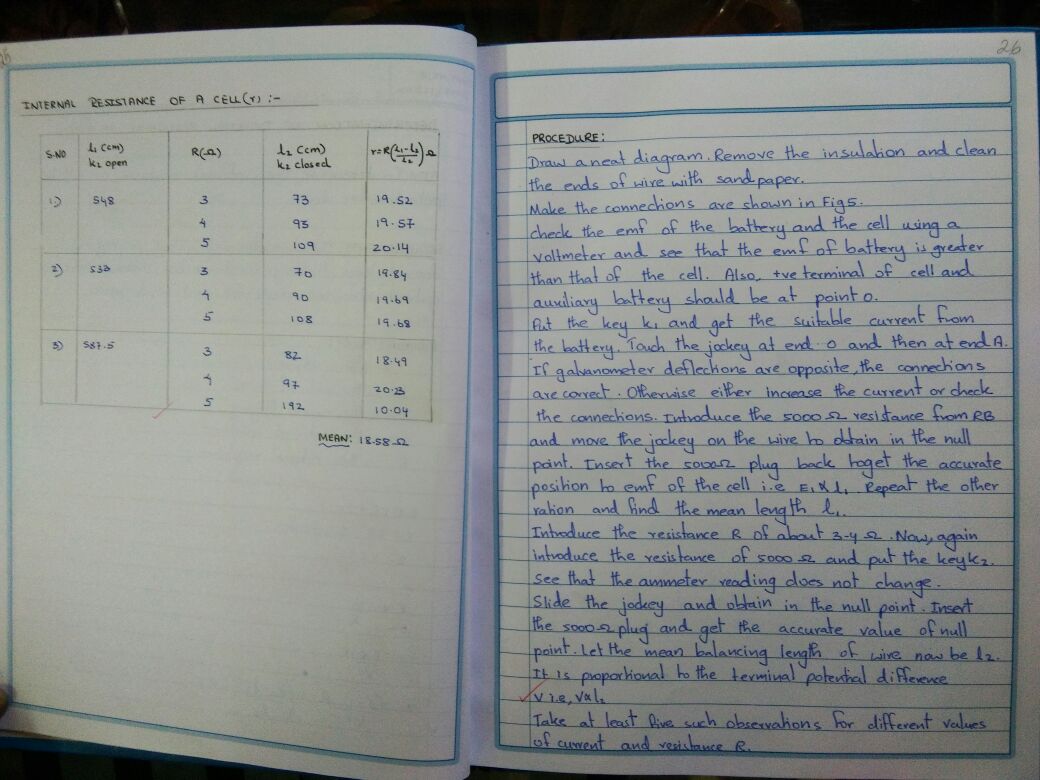 25
INTERNAL RESISTANCE OF A CELL(r) :-
S.NO l₁ (cm) k₂ open R(Ω) l₂ (cm) k₂ closed r=R(l₁-l₂/l₂)Ω
1) 548 3 73 19.52
4 93 19.57
5 109 20.14
2) 533 3 70 19.84
4 90 19.69
5 108 19.68
3) 587.5 3 82 18.49
4 97 20.23
5 192 10.04
MEAN: 18.58 Ω
26
PROCEDURE:
Draw a neat diagram. Remove the insulation and clean
the ends of wire with sandpaper.
Make the connections are shown in Fig 5.
check the emf of the battery and the cell using a
voltmeter and see that the emf of battery is greater
than that of the cell. Also, +ve terminal of cell and
auxiliary battery should be at point 0.
Put the key k₁ and get the suitable current from
the battery. Touch the jockey at end 0 and then at end A.
If galvanometer deflections are opposite, the connections
are correct. Otherwise either increase the current or check
the connections. Introduce the 5000 Ω resistance from RB
and move the jockey on the wire to obtain in the null
point. Insert the 5000Ω plug back to get the accurate
position to emf of the cell i.e E₁ ∝ l₁. Repeat the other
ration and find the mean length l₁.
Introduce the resistance R of about 3-4 Ω. Now, again
introduce the resistance of 5000 Ω and put the key k₂.
See that the ammeter reading does not change.
Slide the jockey and obtain in the null point. Insert
the 5000 Ω plug and get the accurate value of null
point. Let the mean balancing length of wire now be l₂.
It is proportional to the terminal potential difference
V i.e, V∝l₂
Take at least five such observations for different values
of current and resistance R.